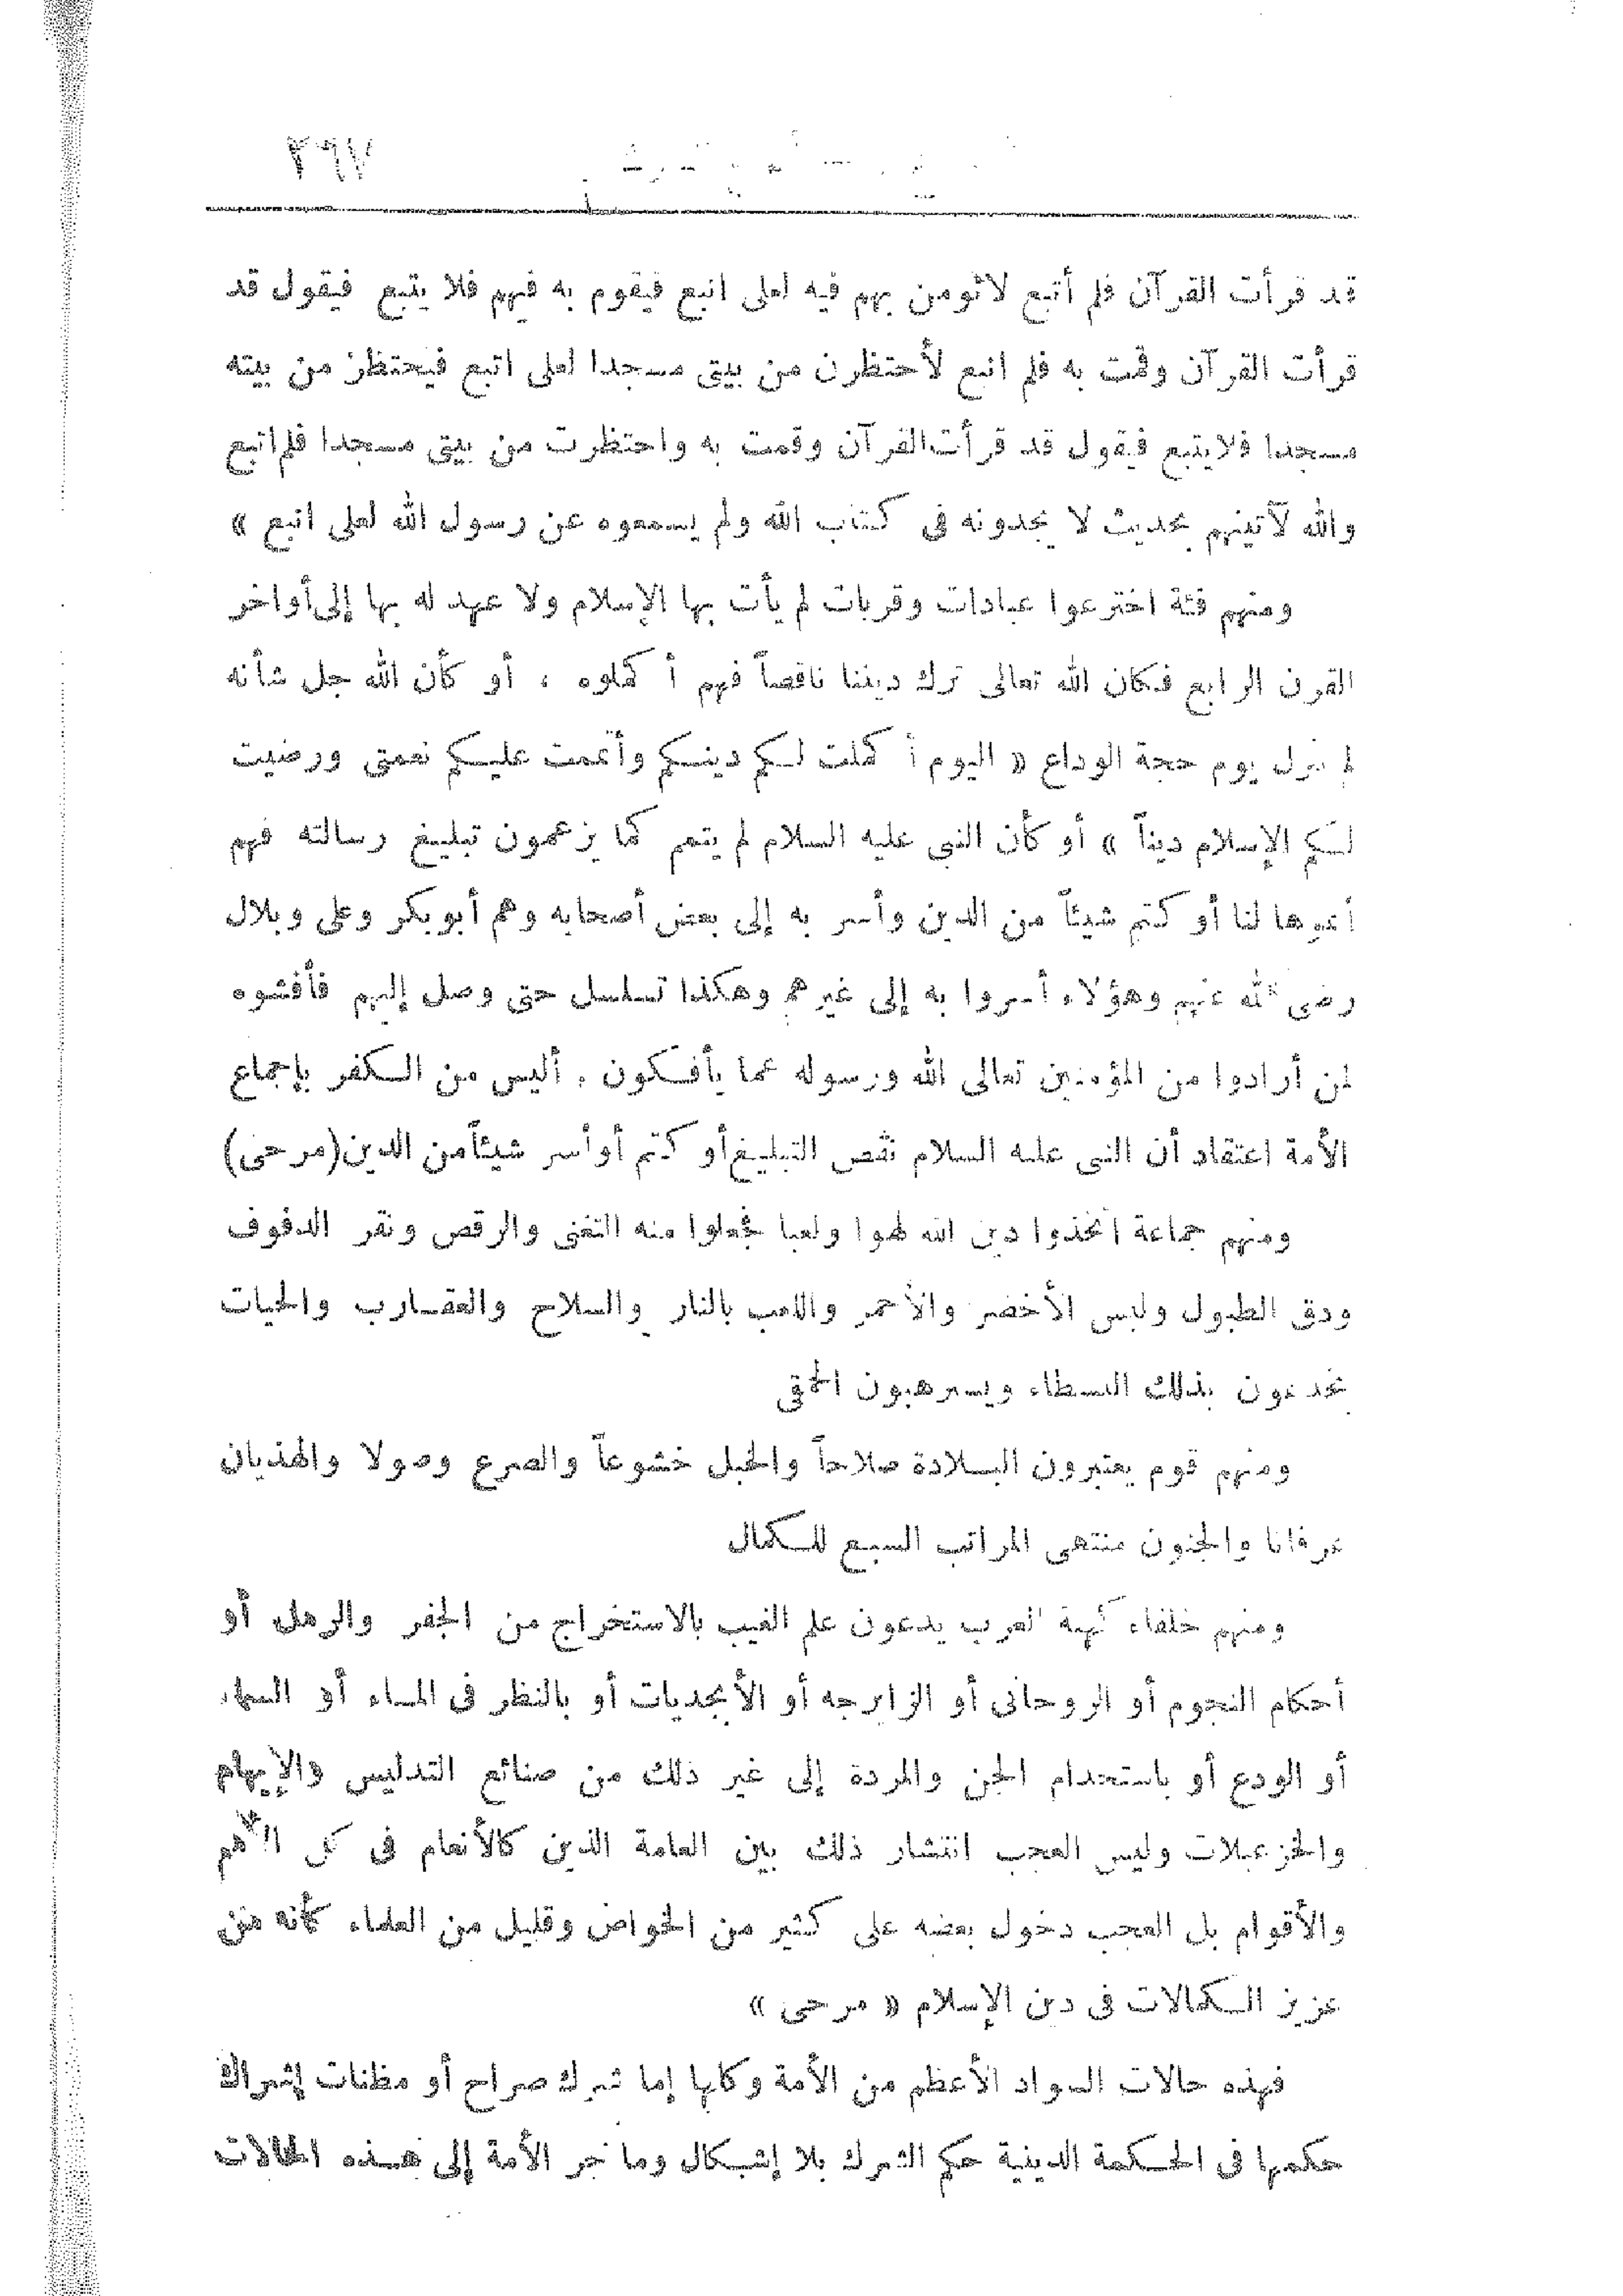 ٣٦٧
قد قرأت القرآن فلم أتبع لاثومن بهم فيه لعلى اتبع فيقوم به فيهم فلا يتبع فيقول قد
قرأت القرآن وقمت به فلم اتبع لأحتظرن من بيتى مسجدا لعلى اتبع فيحتظر من بيته
مسجدا فلا يتبع فيقول قد قرأت القرآن وقمت به واحتظرت من بيتى مسجدا فلم اتبع
والله لآتينهم بحديث لا يجدونه فى كتاب الله ولم يسمعوه عن رسول الله لعلى اتبع »
ومنهم فئة اخترعوا عبادات وقربات لم يأت بها الإسلام ولا عهد له بها إلى أواخر
القرن الرابع فكان الله تعالى ترك ديننا ناقصاً فهم أكملوه ، أو كأن الله جل شأنه
لم ينزل يوم حجة الوداع « اليوم أكملت لكم دينكم وأتممت عليكم نعمتى ورضيت
لكم الإسلام ديناً » أو كأن النبى عليه السلام لم يتمم كما يزعمون تبليغ رسالته فهم
أتموها لنا أو كتم شيئاً من الدين وأسر به إلى بعض أصحابه وهم أبو بكر وعلى وبلال
رضى الله عنهم وهؤلاء أسروا به إلى غيرهم وهكذا تسلسل حتى وصل إليهم فأفشوه
لمن أرادوا من المؤمنين تعالى الله ورسوله عما يأفكون . أليس من الكفر بإجماع
الأمة اعتقاد أن النبى عليه السلام نقص التبليغ أو كتم أو أسر شيئاً من الدين (مرحى)
ومنهم جماعة اتخذوا دين الله لهوا ولعبا فجعلوا منه التغنى والرقص ونقر الدفوف
ودق الطبول ولبس الأخضر والأحمر واللعب بالنار والسلاح والعقارب والحيات
يخدعون بذلك البسطاء ويسترهبون الحمقى
ومنهم قوم يعتبرون البلادة صلاحاً والخبل خشوعاً والصرع وصولا والهذيان
عرفانا والجنون منتهى المراتب السبع للكمال
ومنهم خلفاء كهنة العرب يدعون علم الغيب بالاستخراج من الجفر والرمل أو
أحكام النجوم أو الروحانى أو الزايرجه أو الأبجديات أو بالنظر فى الماء أو السماء
أو الودع أو باستخدام الجن والمردة إلى غير ذلك من صنائع التدليس والإيهام
والخزعبلات وليس العجب انتشار ذلك بين العامة الذين كالأنعام فى كل الأمم
والأقوام بل العجب دخول بعضه على كثير من الخواص وقليل من العلماء كأنه من
عزيز الكمالات فى دين الإسلام « مرحى »
فهذه حالات السواد الأعظم من الأمة وكلها إما شرك صراح أو مظنات إشراك
حكمها فى الحكمة الدينية حكم الشرك بلا إشكال وما جر الأمة إلى هذه الحالات